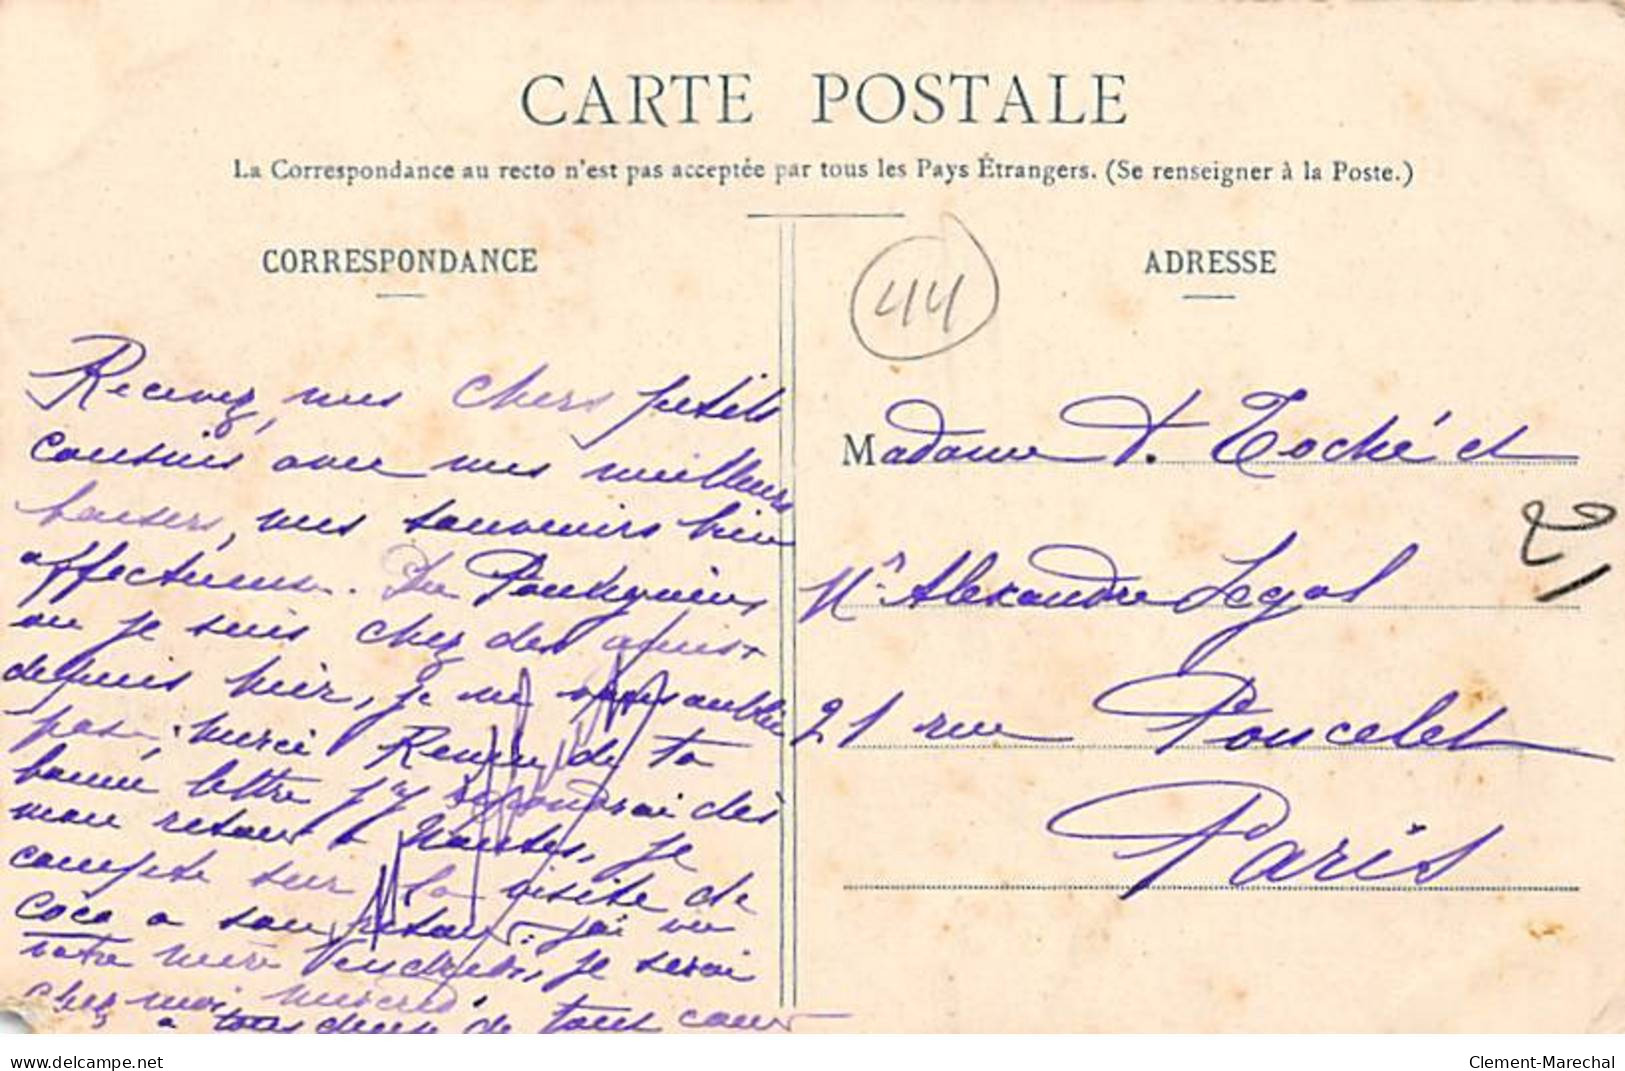 CARTE POSTALE
La Correspondance au recto n'est pas acceptée par tous les Pays Étrangers. (Se renseigner à la Poste.)
CORRESPONDANCE
ADRESSE
44
Recevez, mes chers petits
cousins avec mes meilleurs
baisers, mes souvenirs bien
affectueux. Du Pouliguen,
où je suis chez des amis
depuis hier, je ne vous oublie
pas, merci Renée de ta
bonne lettre j'y répondrai dès
mon retour à Nantes, je
compte sur la visite de
Coco a son retour. j'ai vu
votre mère Vendredi, je serai
chez moi mercredi
a tous deux de tout cœur
Madame A. Toché et
Mr Alexandre Legal
21 rue Poncelet
Paris
delcampe.net
Clement-Marechal